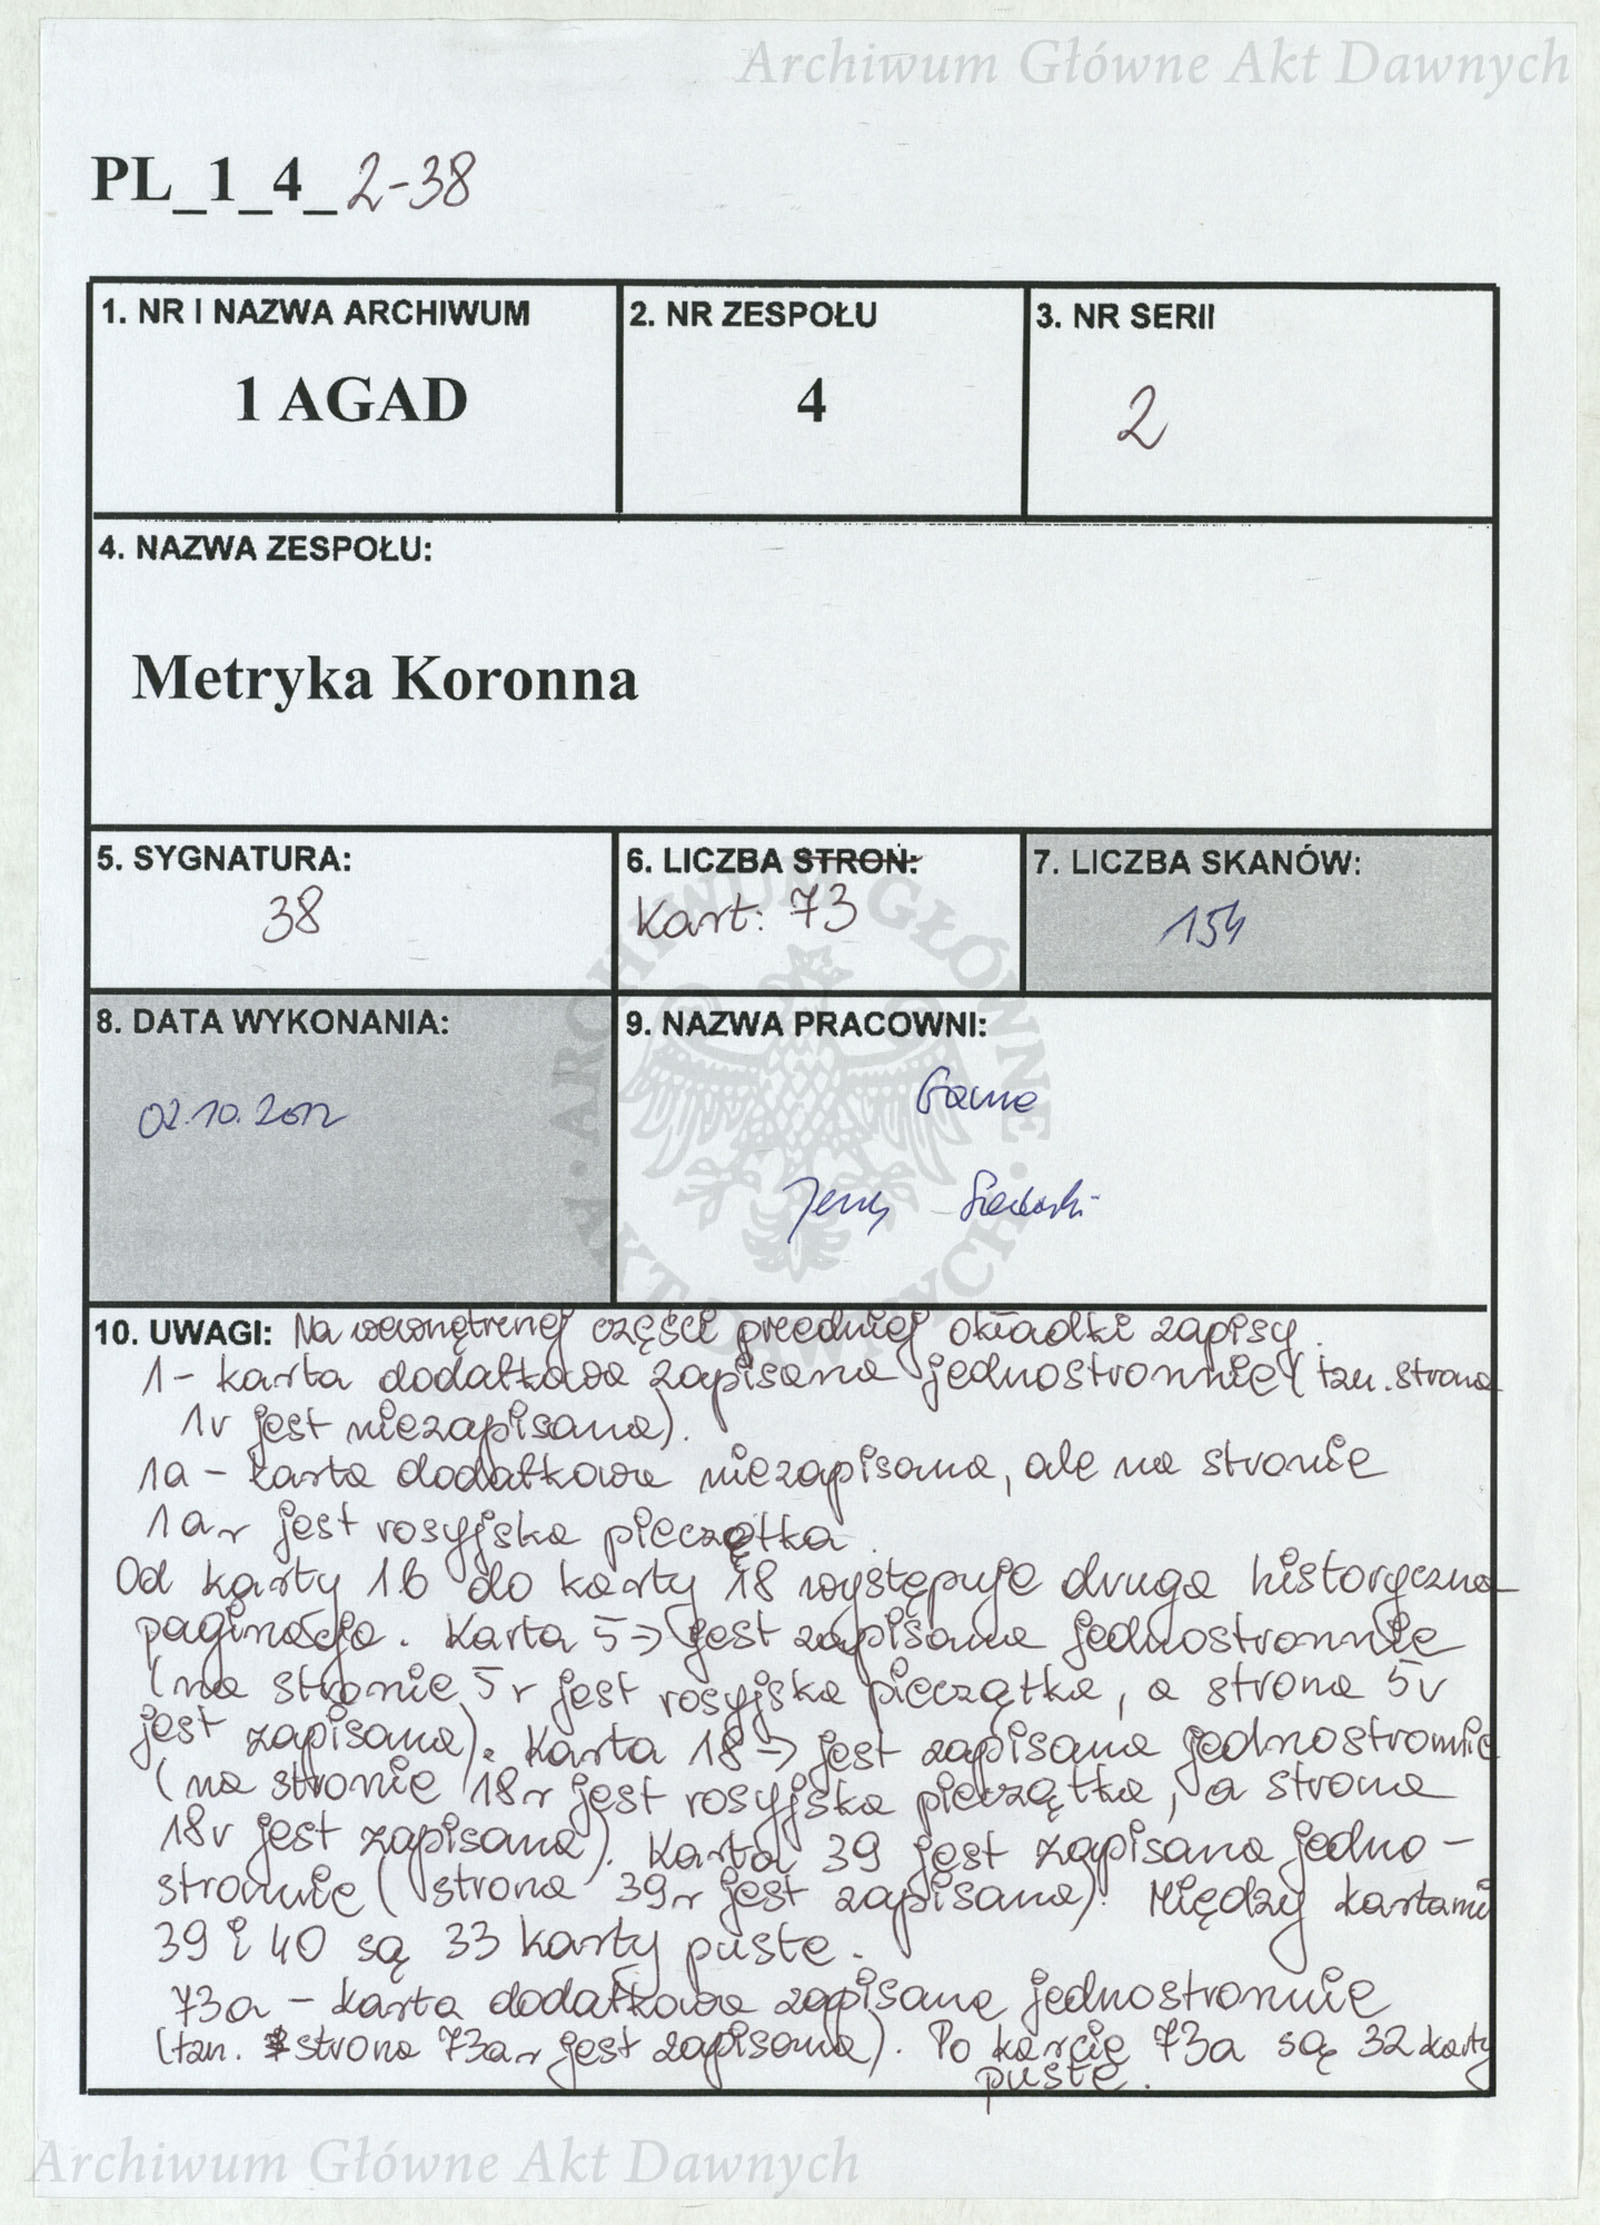 Archiwum Główne Akt Dawnych
PL_1_4_2-38
1. NR I NAZWA ARCHIWUM
1 AGAD
2. NR ZESPOŁU
4
3. NR SERII
2
4. NAZWA ZESPOŁU:
Metryka Koronna
5. SYGNATURA:
38
6. LICZBA STRON:
Kart: 73
7. LICZBA SKANÓW:
154
8. DATA WYKONANIA:
02.10.2012
9. NAZWA PRACOWNI:
Jerzy
ARCHIWUM GŁÓWNE · AKT DAWNYCH ·
10. UWAGI: Na wewnętrznej części przedniej okładki zapisy.
1 - karta dodatkowa zapisana jednostronnie (tzn. strona
1v jest niezapisana).
1a - karta dodatkowa niezapisana, ale na stronie
1ar jest rosyjska pieczątka.
Od karty 16 do karty 18 występuje druga historyczna
paginacja. Karta 5 → jest zapisana jednostronnie
(na stronie 5r jest rosyjska pieczątka, a strona 5v
jest zapisana). Karta 18 → jest zapisana jednostronnie
(na stronie 18r jest rosyjska pieczątka, a strona
18v jest zapisana). Karta 39 jest zapisana jedno-
stronnie (strona 39r jest zapisana). Między kartami
39 i 40 są 33 karty puste.
73a - karta dodatkowa zapisana jednostronnie
(tzn. strona 73ar jest zapisana). Po karcie 73a są 32 karty
puste.
Archiwum Główne Akt Dawnych